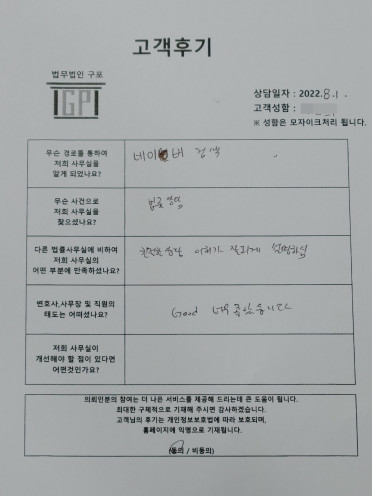 고객후기
법무법인 구포
GP
상담일자 : 2022.8.1.
고객성함 :
※ 성함은 모자이크처리 됩니다.
무슨 경로를 통하여
저희 사무실을
알게 되었나요?
네이버 검색
무슨 사건으로
저희 사무실을
찾으셨나요?
다른 법률사무실에 비하여
저희 사무실의
어떤 부분에 만족하셨나요?
상담 이해가 잘되게 설명하심
변호사,사무장 및 직원의
태도는 어떠셨나요?
Good 너무 좋았습니다
저희 사무실이
개선해야 할 점이 있다면
어떤것인가요?
의뢰인분의 참여는 더 나은 서비스를 제공해 드리는데 큰 도움이 됩니다.
최대한 구체적으로 기재해 주시면 감사하겠습니다.
고객님의 후기는 개인정보보호법에 따라 보호되며,
홈페이지에 익명으로 기재됩니다.
(동의 / 비동의)